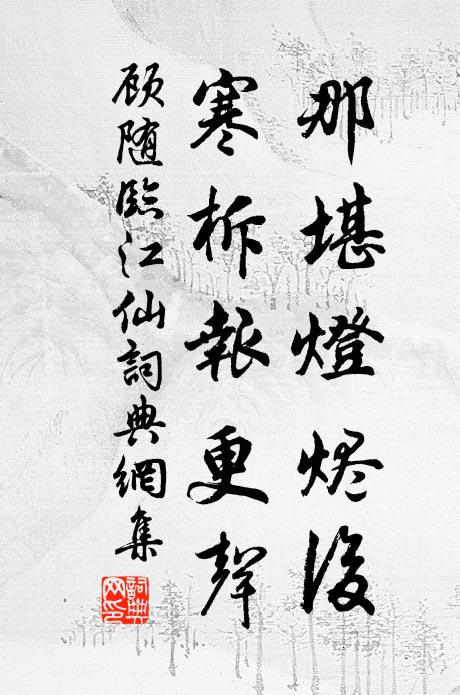 那堪燈烬後
寒柝報更聲
顾随臨江仙詞典網集
詞典网印